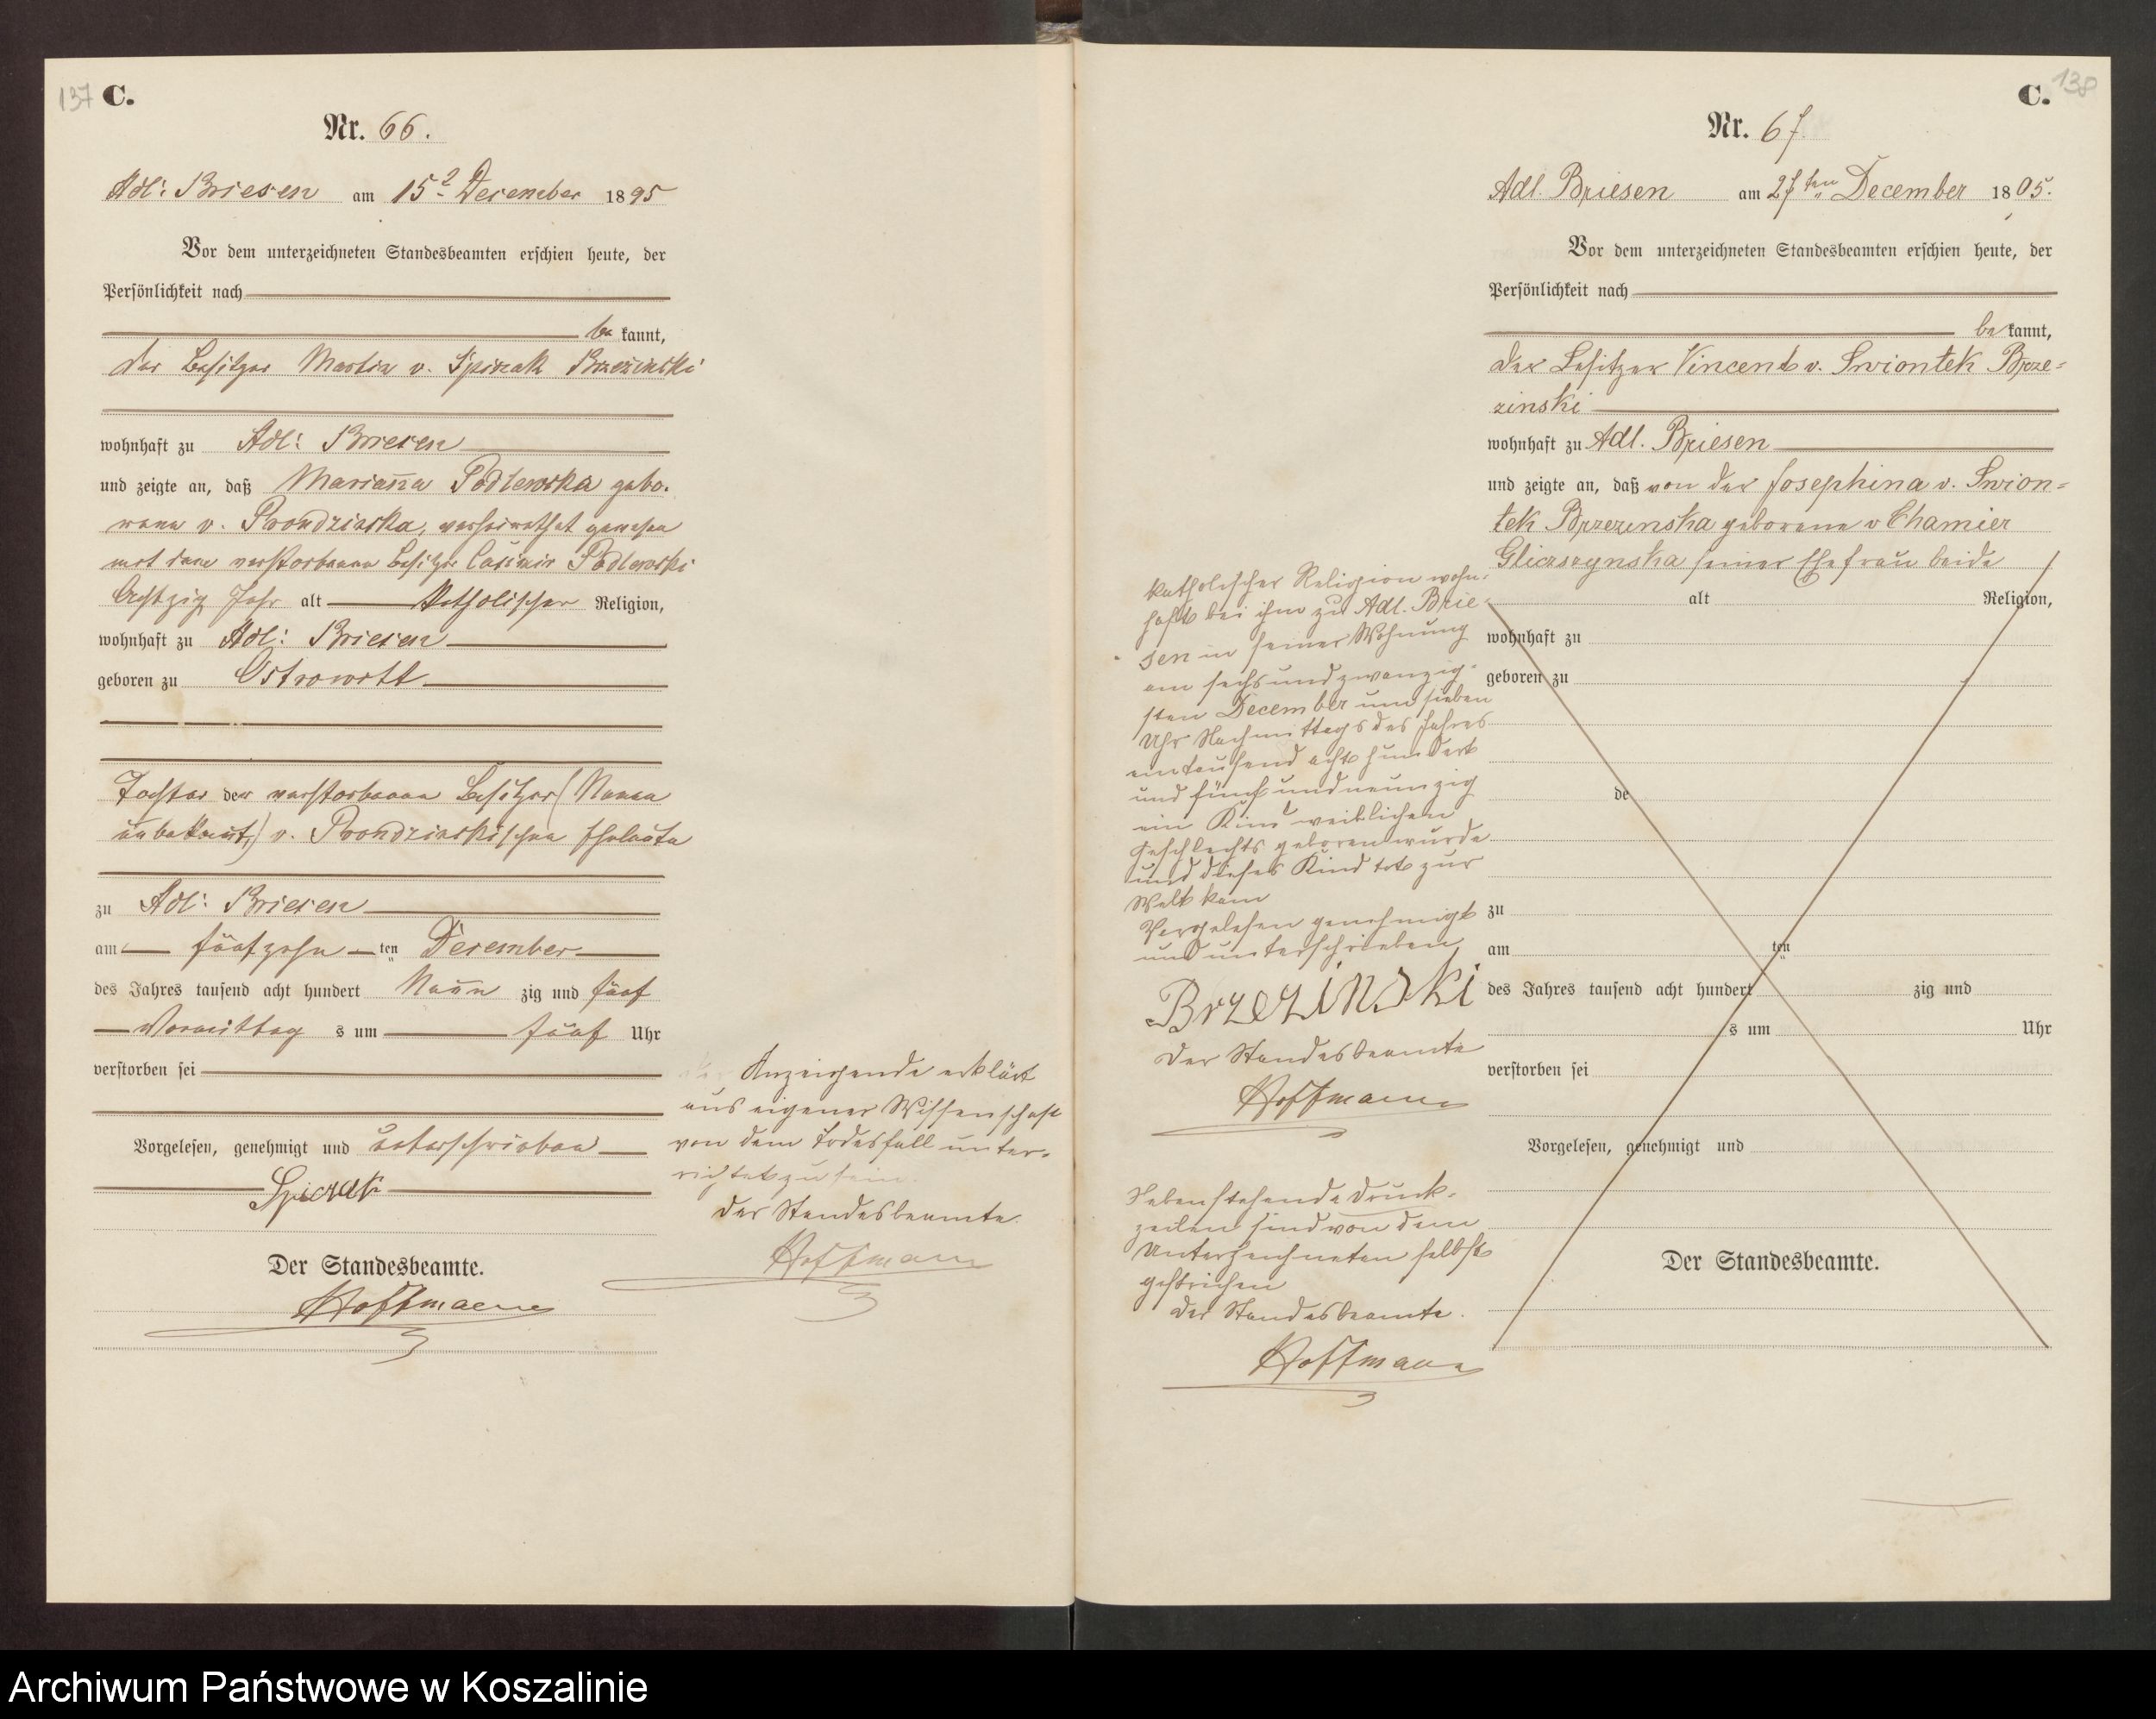 137 C.
Nr. 66.
Adl: Briesen am 15t December 1895
Vor dem unterzeichneten Standesbeamten erschien heute, der
Persönlichkeit nach
be kannt,
der Besitzer Martin v. Spiczak Brzezinski
wohnhaft zu Adl: Briesen
und zeigte an, daß Marianna Podlewska gebo-
rene v. Prondzinska, verheirathet gewesen
mit dem verstorbenen Besitzer Casimir Podlewski
Achtzig Jahr alt Katholischer Religion,
wohnhaft zu Adl: Briesen
geboren zu Ostrowitt
Tochter der verstorbenen Besitzer (Namen
unbekannt,) v. Prondzinskischen Eheleute
zu Adl: Briesen
am fünfzehn ten December
des Jahres tausend acht hundert Neun zig und fünf
Vormittag s um fünf Uhr
verstorben sei
Vorgelesen, genehmigt und unterschrieben
Spiczak
Der Standesbeamte.
Hoffmann
Anzeigende erklärt
aus eigener Wissenschaft
von dem Todesfall unter-
richtet zu sein.
Der Standesbeamte.
Hoffmann
C. 138
Nr. 67
Adl. Briesen am 27ten December 1895.
Vor dem unterzeichneten Standesbeamten erschien heute, der
Persönlichkeit nach
be kannt,
der Besitzer Vincent v. Swiontek Brze-
zinski
wohnhaft zu Adl. Briesen
und zeigte an, daß von der Josephina v. Swion-
tek Brzezinska geborene v Chamier
Gliczczynska seiner Ehefrau beide
katholischer Religion wohn-
haft bei ihm zu Adl. Brie-
sen in seiner Wohnung
am sechsundzwanzig-
sten December um sieben
Uhr Nachmittags des Jahres
eintausend acht hundert
und fünf und neunzig
ein Kind weiblichen
Geschlechts geboren wurde
und dieses Kind tot zur
Welt kam
Vorgelesen genehmigt
und unterschrieben
Brzezinski
Der Standesbeamte
Hoffmann
Nebenstehende Druck-
zeilen sind von dem
Unterzeichneten selbst
gestrichen
Der Standesbeamte.
Hoffmann
alt Religion,
wohnhaft zu
geboren zu
de
zu
am ten
des Jahres tausend acht hundert zig und
s um Uhr
verstorben sei
Vorgelesen, genehmigt und
Der Standesbeamte.
Archiwum Państwowe w Koszalinie